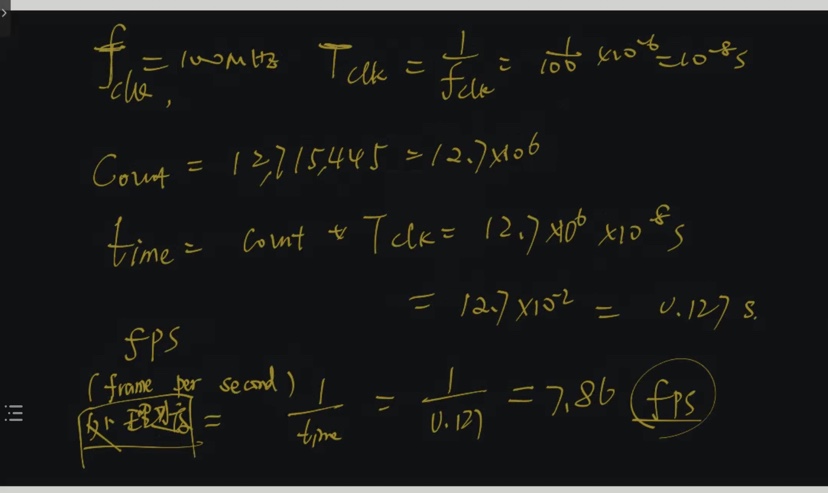 f_clk = 100MHz, T_clk = 1/f_clk = 1/100 ×10^-6 = 10^-8 s
Count = 12,715,445 = 12.7×10^6
time = count * Tclk = 12.7×10^6 ×10^-8 s
= 12.7×10^-2 = 0.127 s.
fps
(frame per second)
= 1/time = 1/0.127 = 7.86 fps